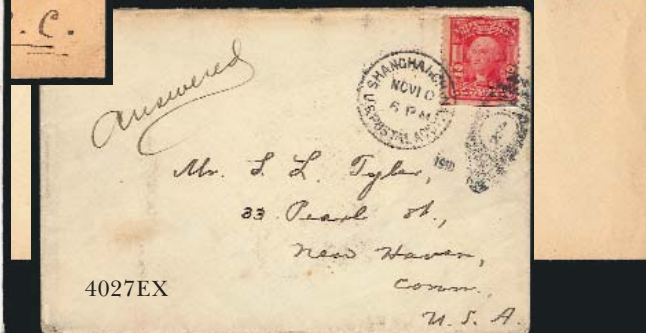 . C.
answered
SHANGHAI, CHINA
NOV 10
6 PM
U.S. POSTAL AGENCY
1910
Mr. S. L. Tyler,
33 Pearl St.,
New Haven,
Conn.,
U. S. A.
4027EX